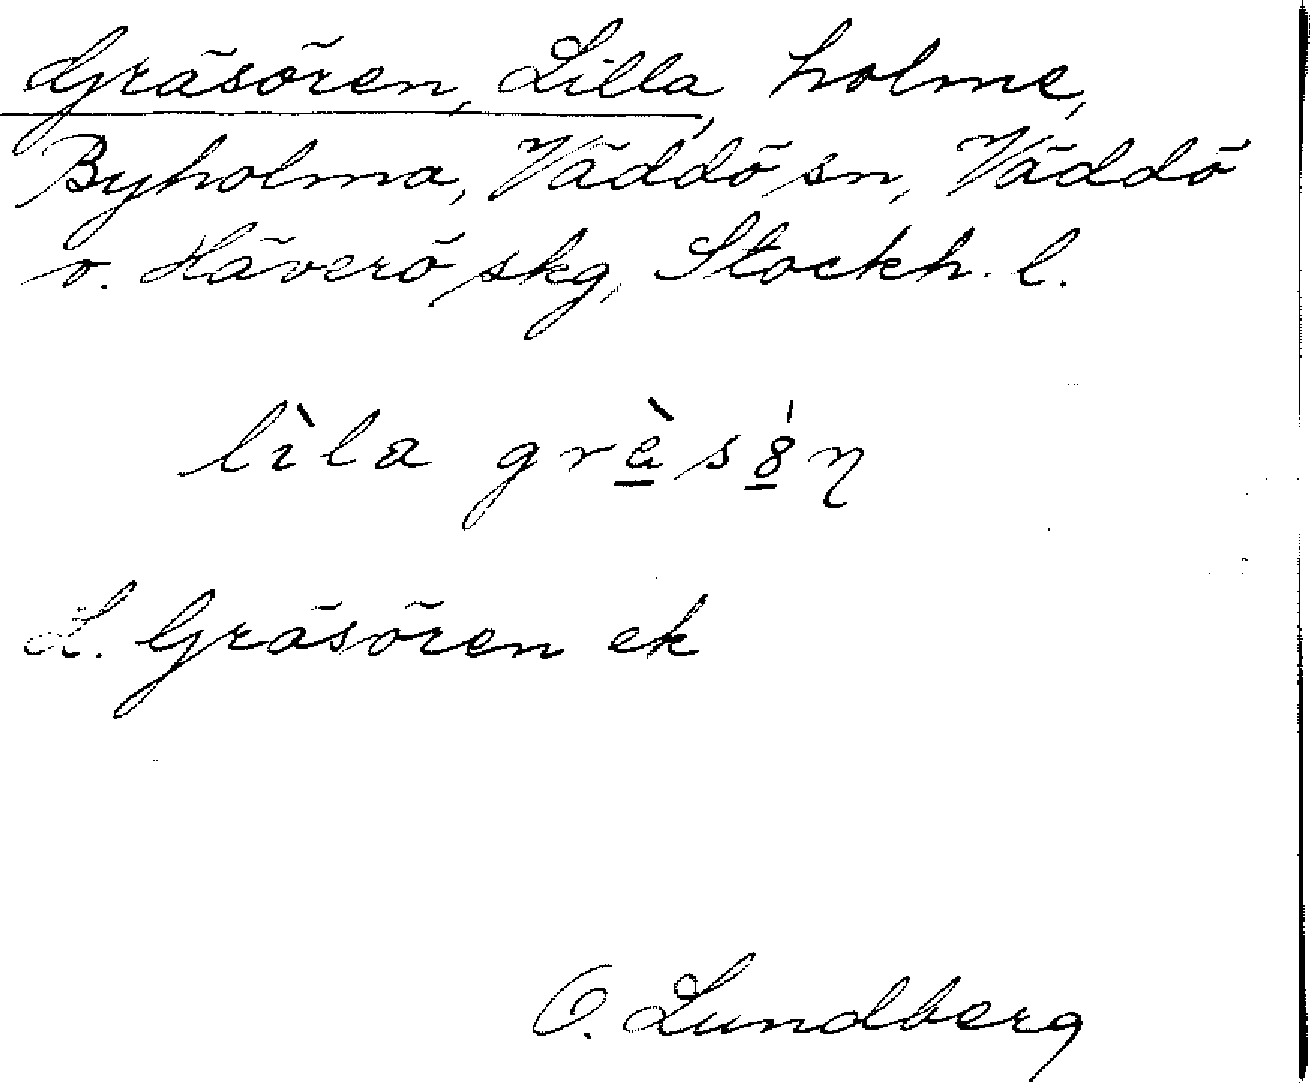 Gräsören, Lilla, holme,
Byholma, Väddö sn, Väddö
o. Häverö skg, Stockh. l.
lìla gräs
L. Gräsören ek
O. Lundberg